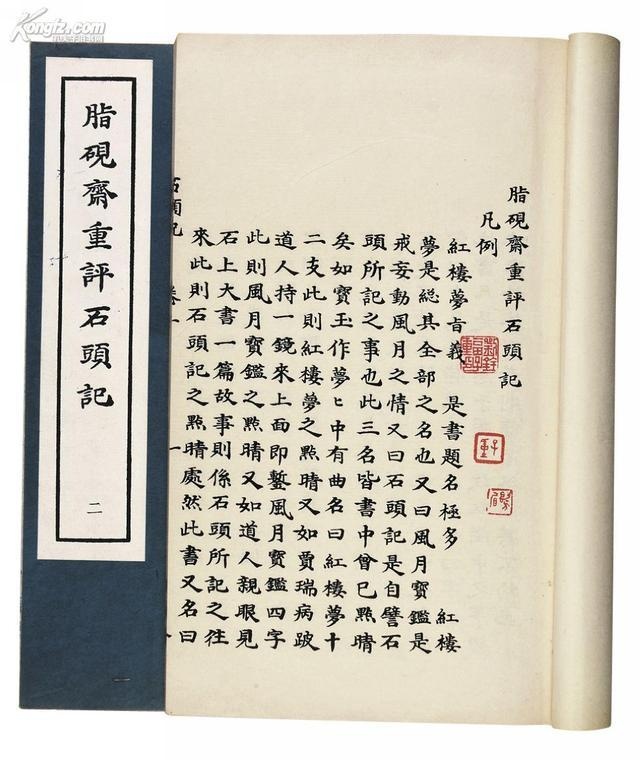 Kongfz.com
脂硯齋重評石頭記
二
一
脂硯齋重評石頭記
凡例
紅樓夢旨義　是書題名極多　紅樓
夢是總其全部之名也又曰風月寶鑑是
戒妄動風月之情又曰石頭記是自譬石
頭所記之事也此三名皆書中曾已㸃晴
矣如寶玉作夢〻中有曲名曰紅樓夢十
二支此則紅樓夢之㸃晴又如賈瑞病跛
道人持一鏡來上面即鏨風月寶鑑四字
此則風月寶鑑之㸃晴又如道人親眼見
石上大書一篇故事則係石頭所記之往
來此則石頭記之㸃晴處然此書又名曰
石頭記　卷一　一